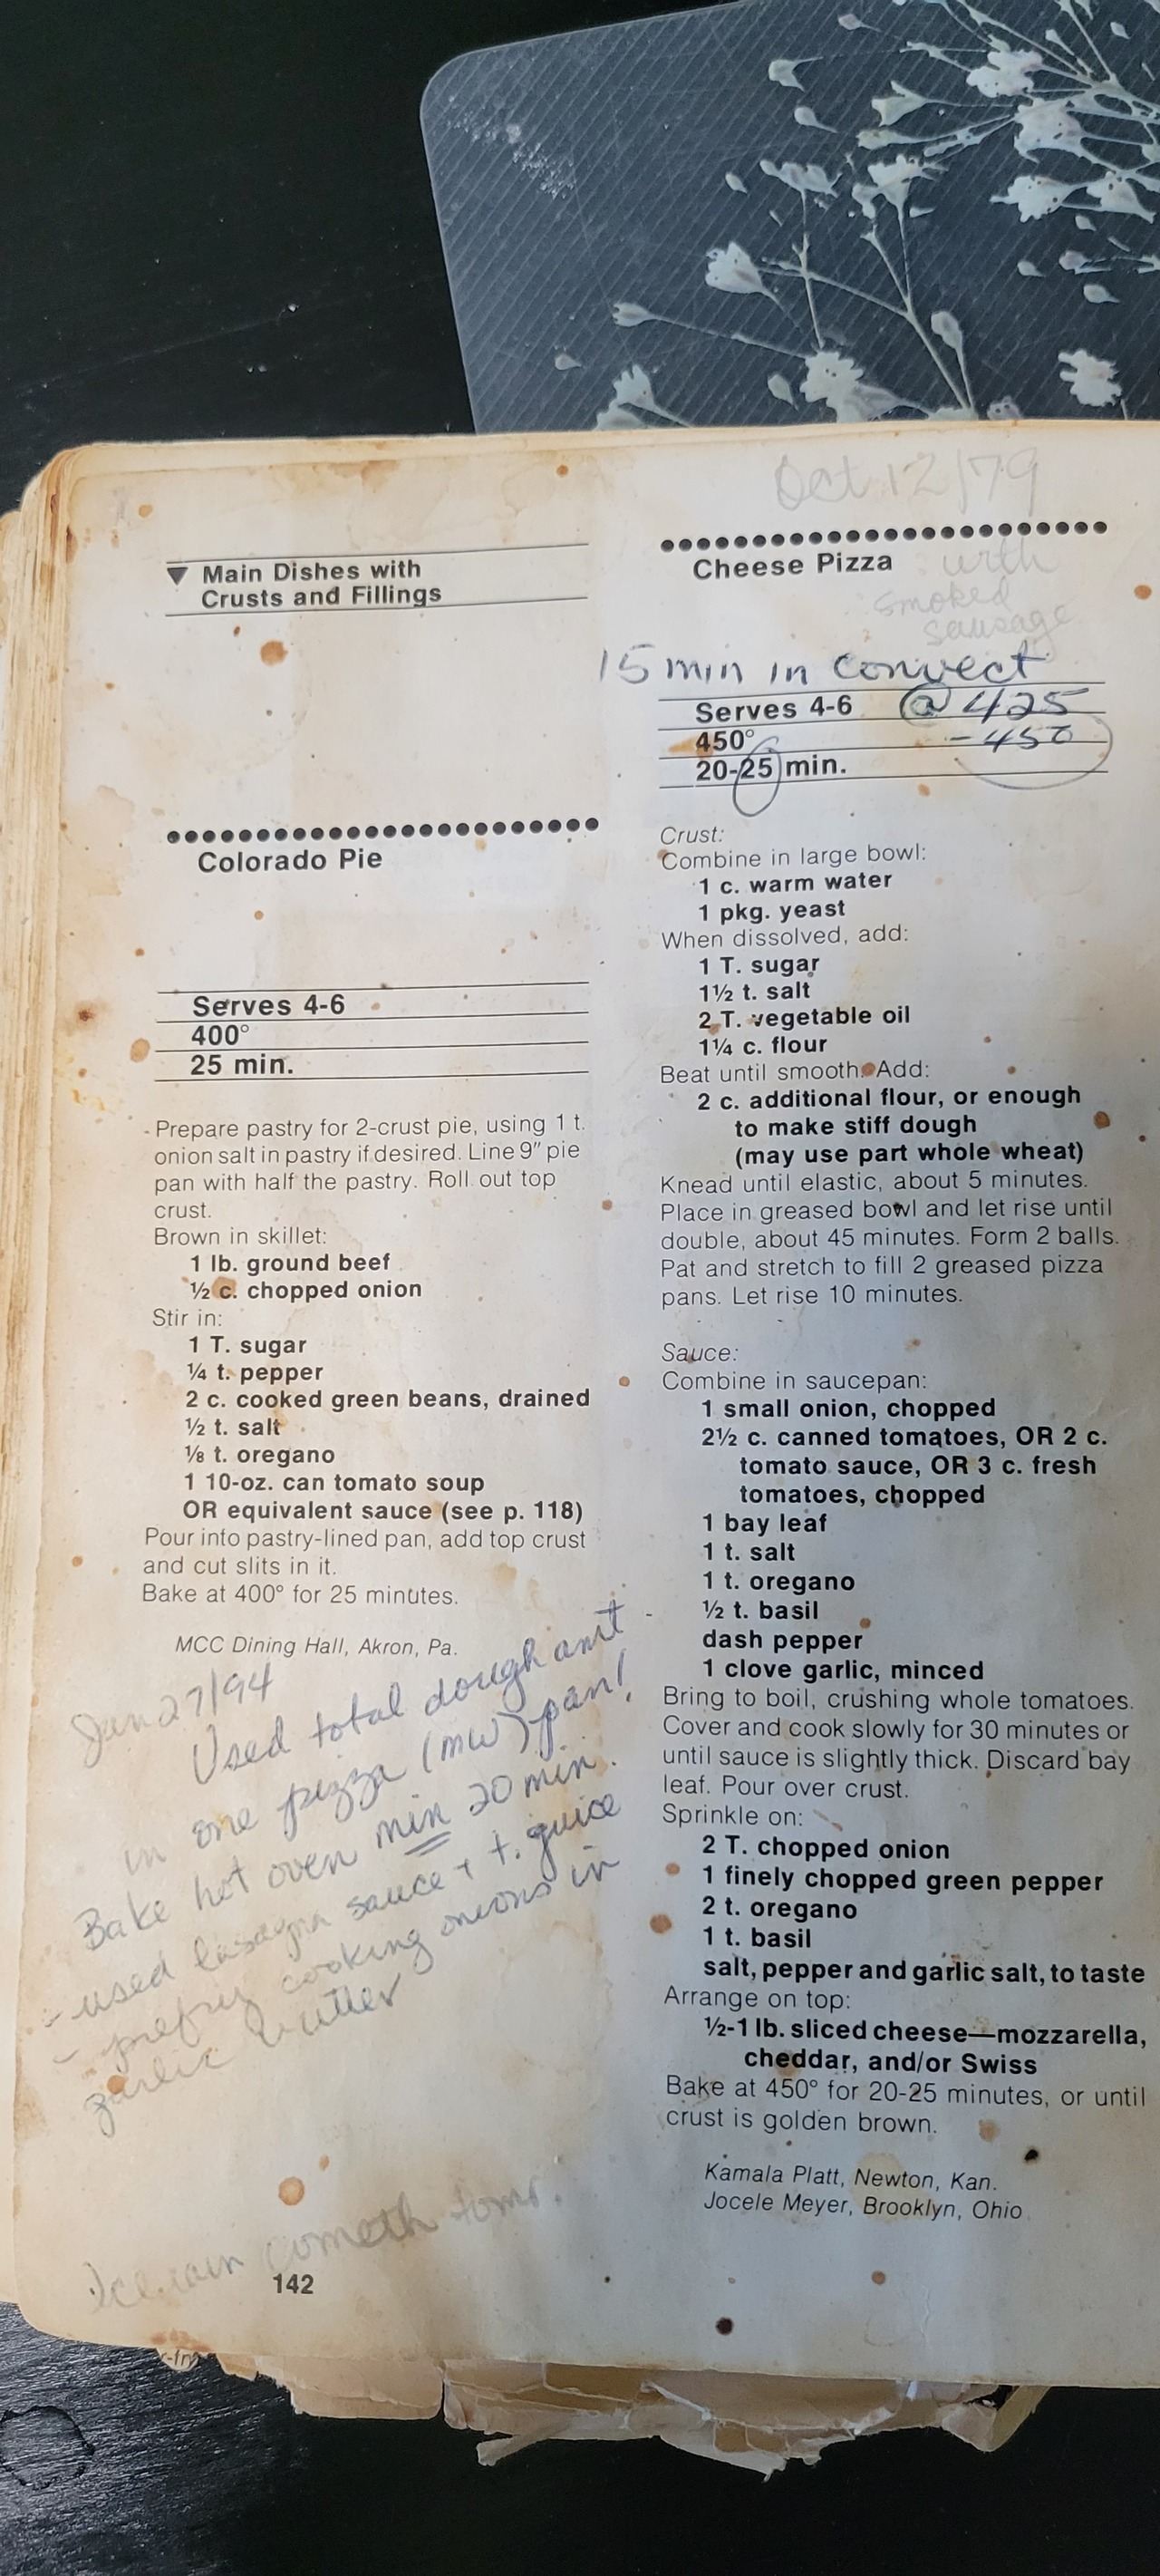 ▼ Main Dishes with
Crusts and Fillings
Colorado Pie
Serves 4-6
400°
25 min.
Prepare pastry for 2-crust pie, using 1 t.
onion salt in pastry if desired. Line 9" pie
pan with half the pastry. Roll out top
crust.
Brown in skillet:
1 lb. ground beef
½ c. chopped onion
Stir in:
1 T. sugar
¼ t. pepper
2 c. cooked green beans, drained
½ t. salt
⅛ t. oregano
1 10-oz. can tomato soup
OR equivalent sauce (see p. 118)
Pour into pastry-lined pan, add top crust
and cut slits in it.
Bake at 400° for 25 minutes.
MCC Dining Hall, Akron, Pa.
Jan 27/94
Used total dough amt
in one pizza (mw) pan!
Bake hot oven min 20 min.
- used lasagna sauce + t. juice
- prefry cooking onions in
garlic butter
Ice rain cometh tomr.
142
Oct 12/79
Cheese Pizza with
smoked
sausage
15 min in convect
Serves 4-6 @ 425
450° - 450
20-25 min.
Crust:
Combine in large bowl:
1 c. warm water
1 pkg. yeast
When dissolved, add:
1 T. sugar
1½ t. salt
2 T. vegetable oil
1¼ c. flour
Beat until smooth. Add:
2 c. additional flour, or enough
to make stiff dough
(may use part whole wheat)
Knead until elastic, about 5 minutes.
Place in greased bowl and let rise until
double, about 45 minutes. Form 2 balls.
Pat and stretch to fill 2 greased pizza
pans. Let rise 10 minutes.
Sauce:
Combine in saucepan:
1 small onion, chopped
2½ c. canned tomatoes, OR 2 c.
tomato sauce, OR 3 c. fresh
tomatoes, chopped
1 bay leaf
1 t. salt
1 t. oregano
½ t. basil
dash pepper
1 clove garlic, minced
Bring to boil, crushing whole tomatoes.
Cover and cook slowly for 30 minutes or
until sauce is slightly thick. Discard bay
leaf. Pour over crust.
Sprinkle on:
2 T. chopped onion
1 finely chopped green pepper
2 t. oregano
1 t. basil
salt, pepper and garlic salt, to taste
Arrange on top:
½-1 lb. sliced cheese—mozzarella,
cheddar, and/or Swiss
Bake at 450° for 20-25 minutes, or until
crust is golden brown.
Kamala Platt, Newton, Kan.
Jocele Meyer, Brooklyn, Ohio